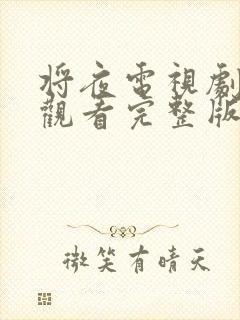 將夜電視劇
觀看完整版
微笑有晴天